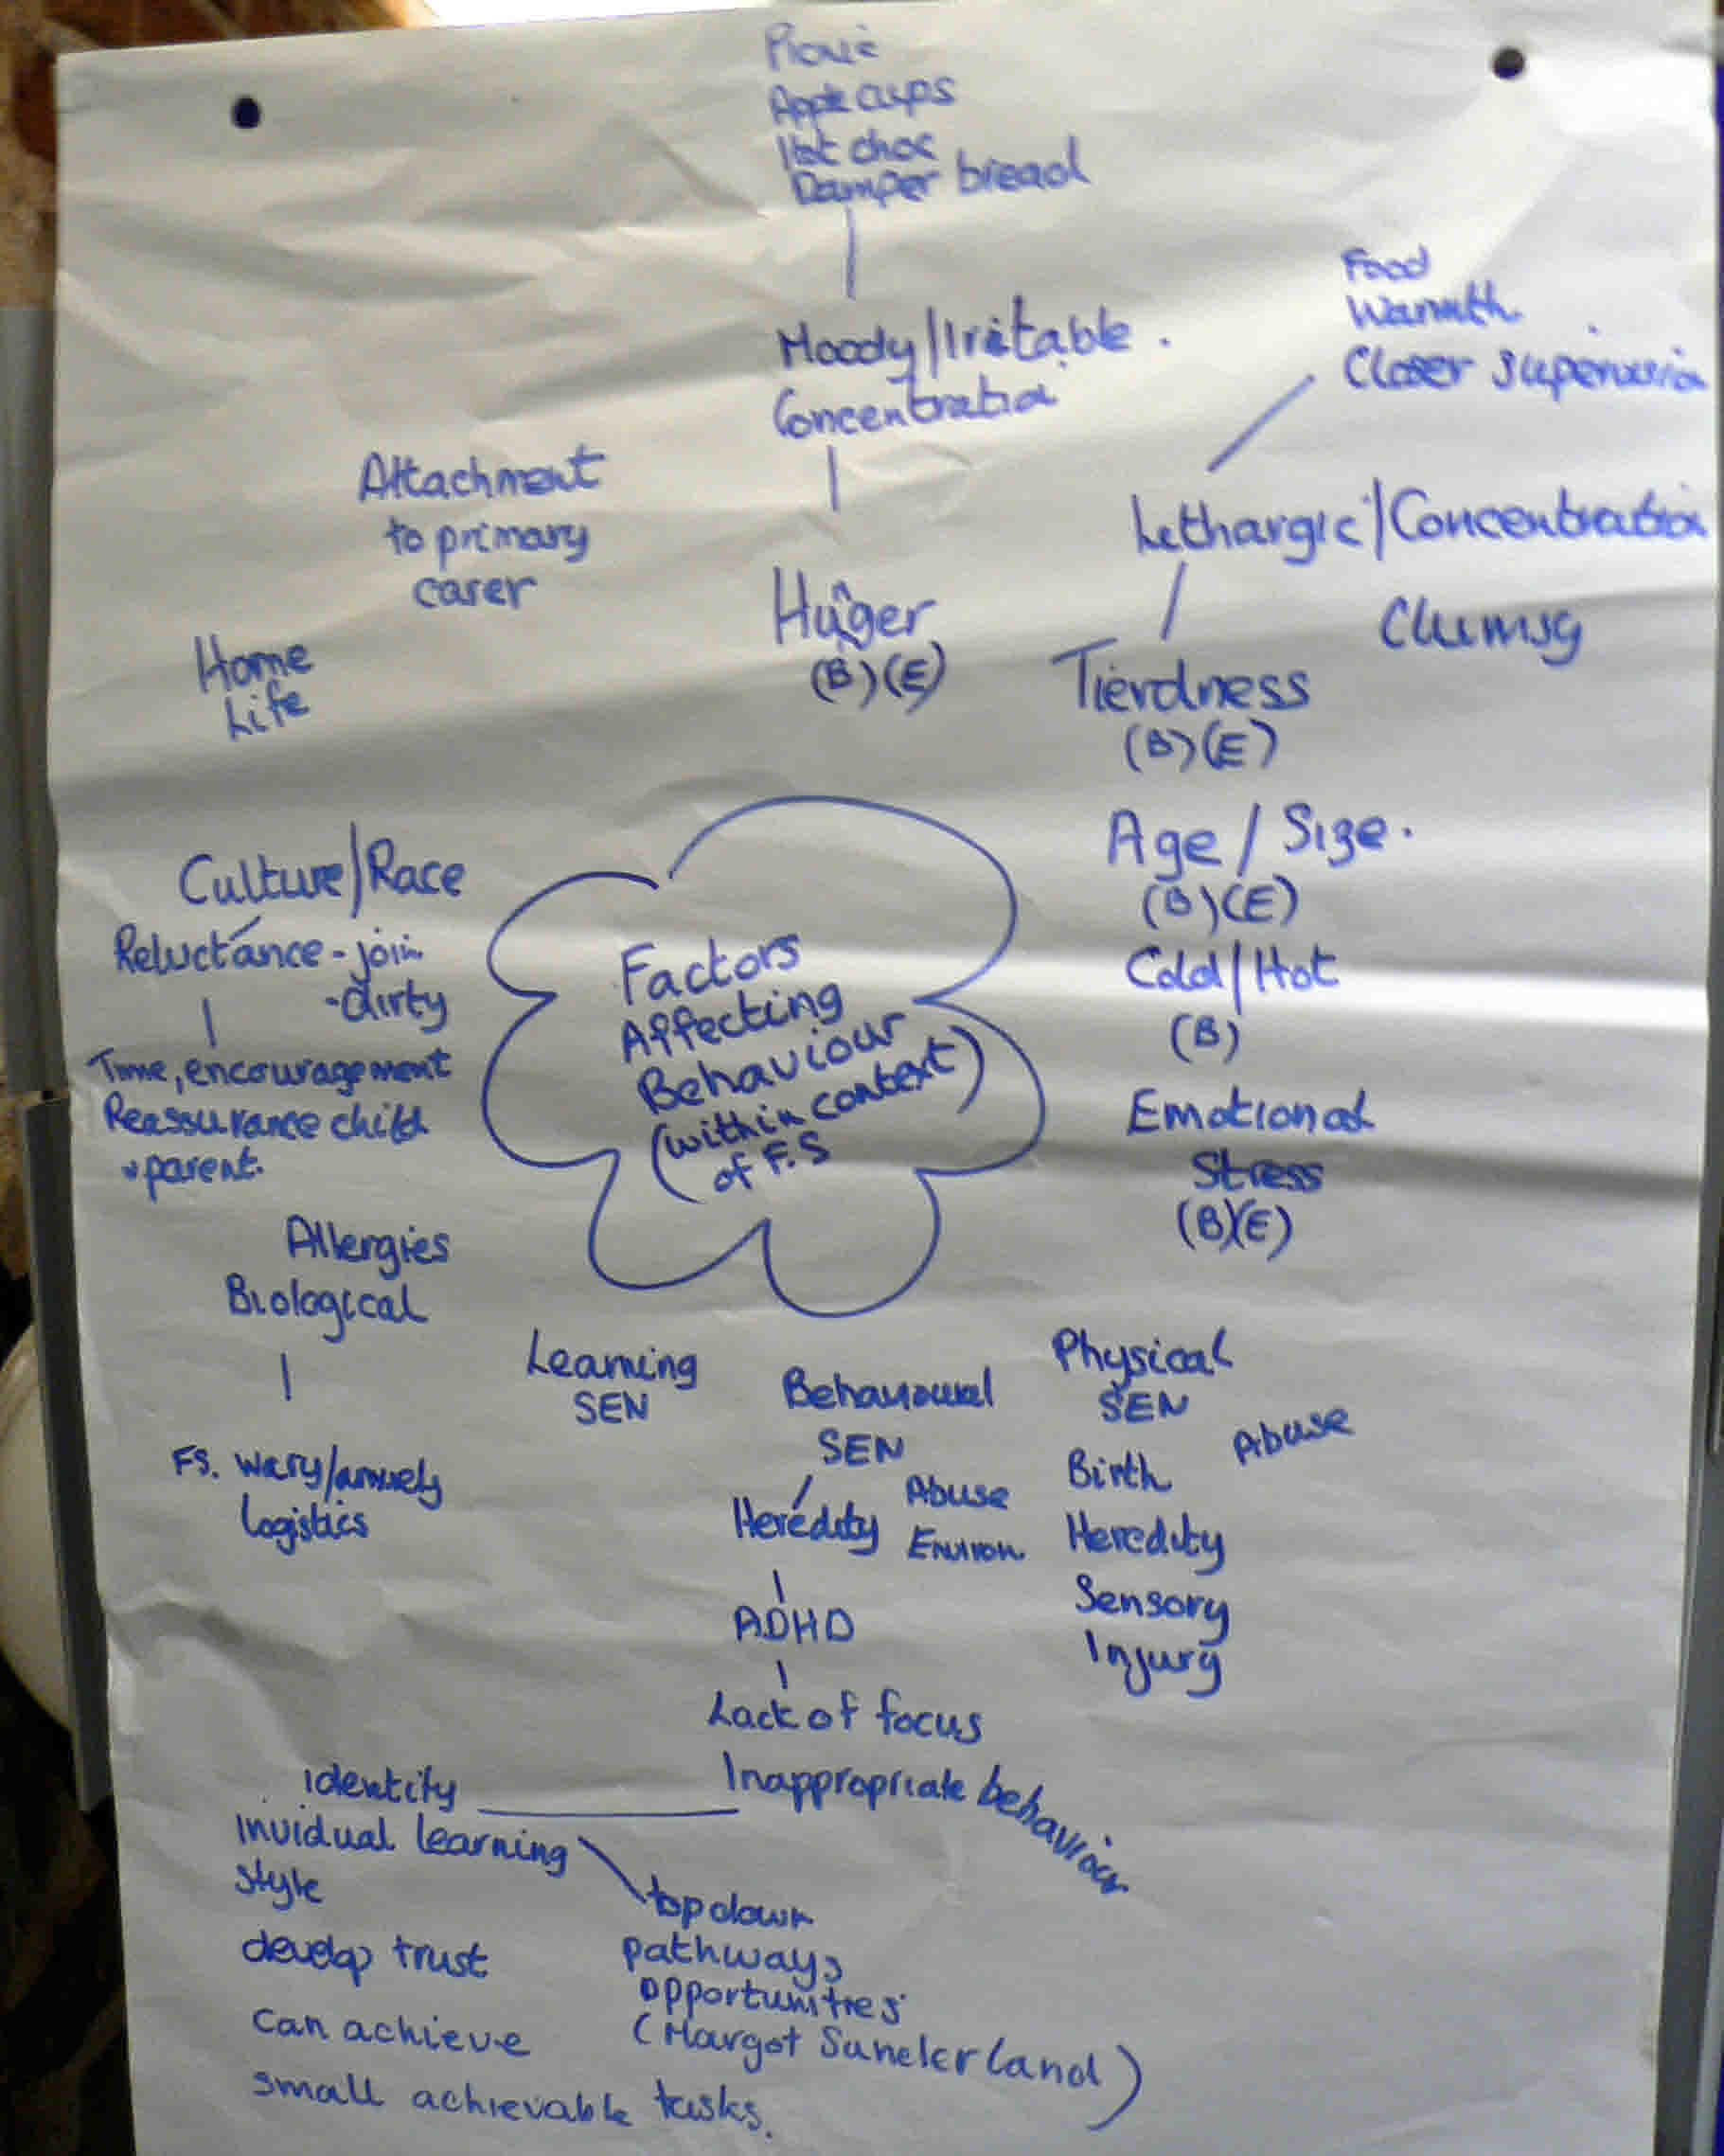 Picnic
Apple cups
Hot choc
Damper bread
Moody/Iritable.
Concentratio
Food
Warmth
Closer supervision
Lethargic/Concentration
Clumsy
Attachment
to primary
carer
Home
Life
Huger
(B)(E)
Tierdness
(B)(E)
Age / Size.
(B)(E)
Cold/Hot
(B)
Emotional
Stress
(B)(E)
Culture/Race
Reluctance - join
- dirty
Time, encouragement
Reassurance child
+ parent.
Factors
Affecting
Behaviour
(within context)
of F.S
Allergies
Biological
FS. wary/
Logistics
Learning
SEN
Behavioural
SEN
Heredity
Abuse
Environ.
ADHD
Lack of focus
Inappropriate behaviour
Physical
SEN
Abuse
Birth
Heredity
Sensory
Injury
identity
invidual learning
style
develop trust
can achieve
small achievable tasks.
top down
pathways
opportunities
(Margot Sunderland)